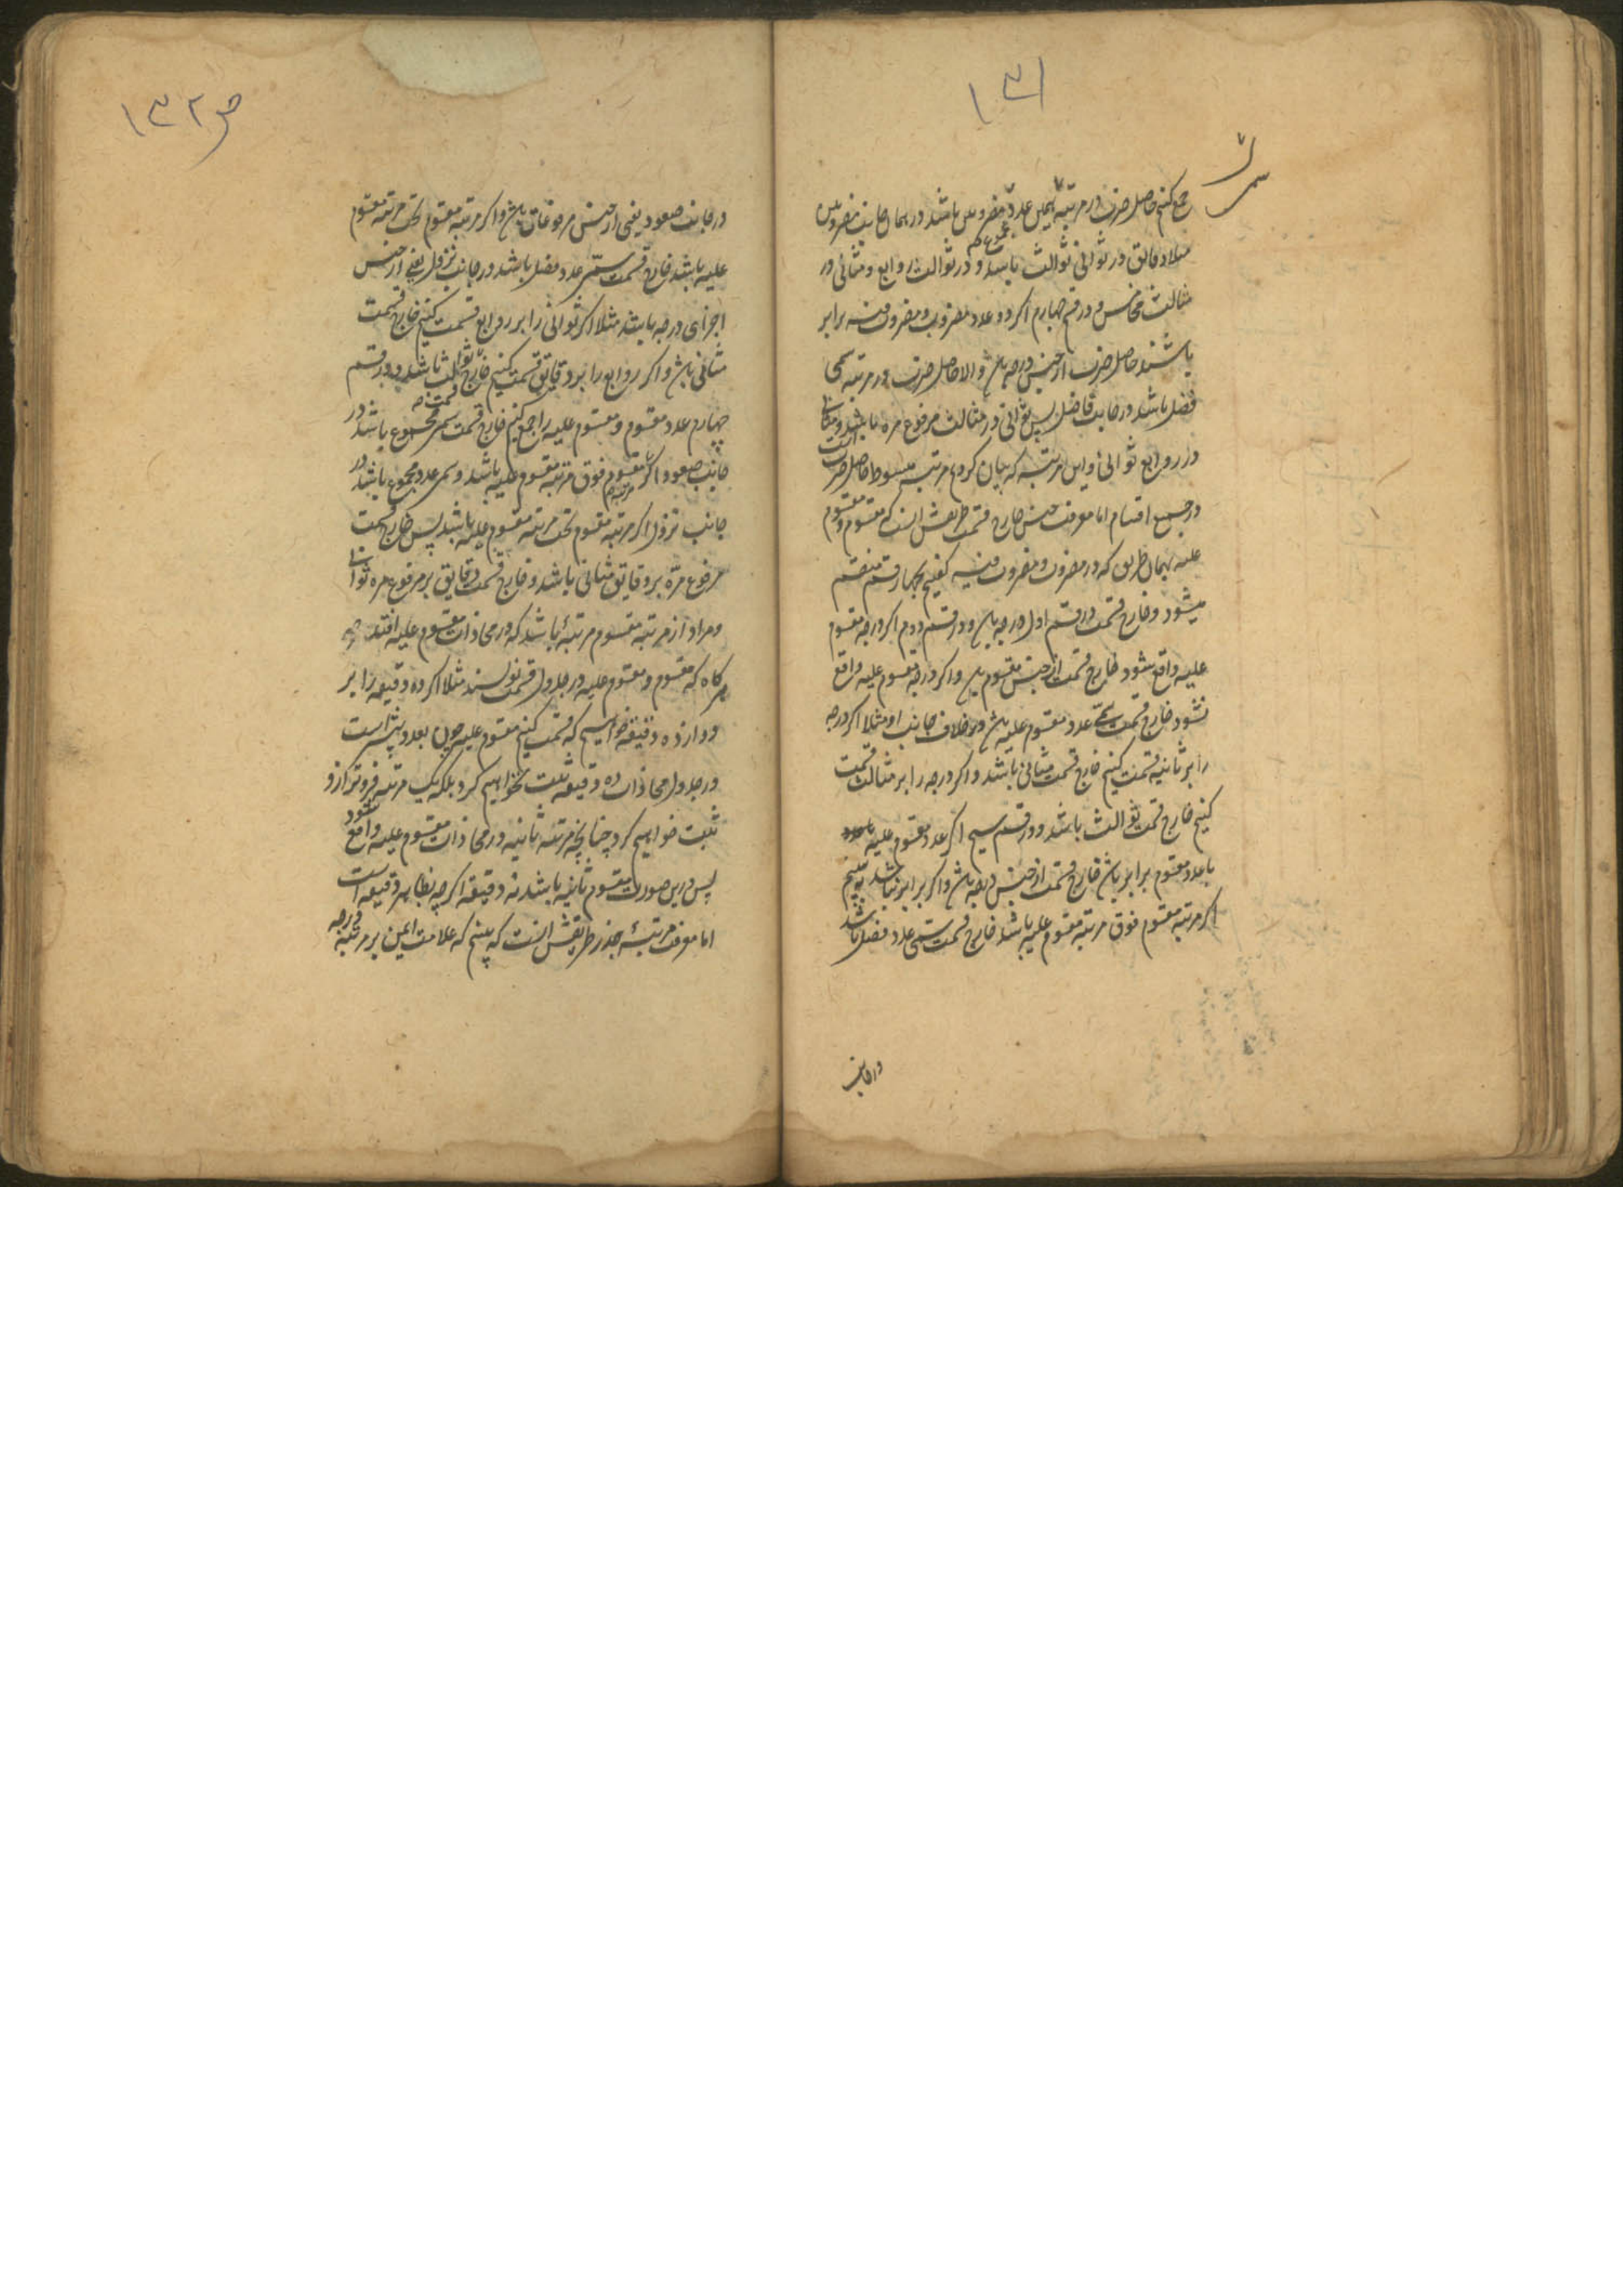 ۱۳۱
جمع کنیم حاصل ضرب در مرتبه سمی عدد مضروبین باشد در همان جانب مضروبین
مجموع
مثلا دقایق در ثوانی ثوالث باشد و در ثوالث روابع و مثانی در
مثالث مخامس و در قسم چهارم اکر دو عدد مضروب و مضروب فیه برابر
باشند حاصل ضرب از جنس درجه باش والا حاصل ضرب در مرتبه سمی
فضل باشد در جانب فاضل پس ثوانی در مثالث مرفوع مره باشد و مثانی
در روابع ثوانی و این مرتبه که بیان کردیم مرتبه مبسوط حاصل ضرب است
در جمیع اقسام اما معرفت جنس خارج قسمت طریقش انست که مقسوم و مقسوم
علیه بهمان طریق که در مضروب و مضروب فیه کفتیم بچهار قسم منقسم
میشود و خارج قسمت در قسم اول درجه باش و در قسم دوم اکر درجه مقسوم
علیه واقع شود خارج قسمت از جنس مقسوم باش و اکر درجه مقسوم علیه واقع
نشود خارج قسمت سمی عدد مقسوم علیه باش در خلاف جانب او مثلا اکر درجه
را بر ثانیه قسمت کنیم خارج قسمت مثانی باشد و اکر درجه را بر مثالث قسمت
کنیم خارج قسمت ثوالث باشد و در قسم سیم اکر عدد مقسوم علیه
با عدد مقسوم برابر باش خارج قسمت از جنس درجه باش و اکر برابر نباشد ببینیم
اکر مرتبه مقسوم فوق مرتبه مقسوم علیه باشد خارج قسمت سمی عدد فضل باشد
در جانب
ص ۱۳۲
در جانب صعود یعنی از جنس مرفوعات باش و اکر مرتبه مقسوم تحت مرتبه مقسوم
علیه باشد خارج قسمت سمی عدد فضل باشد در جانب نزول یعنی از جنس
اجزای درجه باشد مثلا اکر ثوانی را بر روابع قسمت کنیم خارج قسمت
مثانی باش و اکر روابع را بر دقایق قسمت کنیم خارج قسمت ثوالث باشد و در قسم
چهارم عدد مقسوم و مقسوم علیه را جمع کنیم خارج قسمت سمی مجموع باشد در
جانب صعود اکر مرتبه مقسوم فوق مرتبه مقسوم علیه باشد و سمی عدد مجموع باشد در
جانب نزول اکر مرتبه مقسوم تحت مرتبه مقسوم علیه باشد پس خارج قسمت
مرفوع مره بر دقایق مثانی باشد و خارج قسمت دقایق بر مرفوع مره ثوانی
و مراد از مرتبه مقسوم مرتبهٔ باشد که در محاذات مقسوم علیه افتد
هر کاه که مقسوم و مقسوم علیه در جدول قسمت نویسند مثلا اکر ده دقیقه را بر
دوازده دقیقه خواهیم که قسمت کنیم مقسوم علیه چون بعدد بیشتر است
در جدول محاذات ده دقیقه ثبت نخواهیم کرد بلکه یک مرتبه فروتر ازو
ثبت خواهیم کرد چنانچه مرتبه ثانیه در محاذات مقسوم علیه واقع شود
پس درین صورت مقسوم ثانیه باشد نه دقیقه اکرچه بظاهر دقیقه است
اما معرفت مرتبهٔ جذر طریقش انست که ببینیم که علامت ایمن بر مرتبه درجه